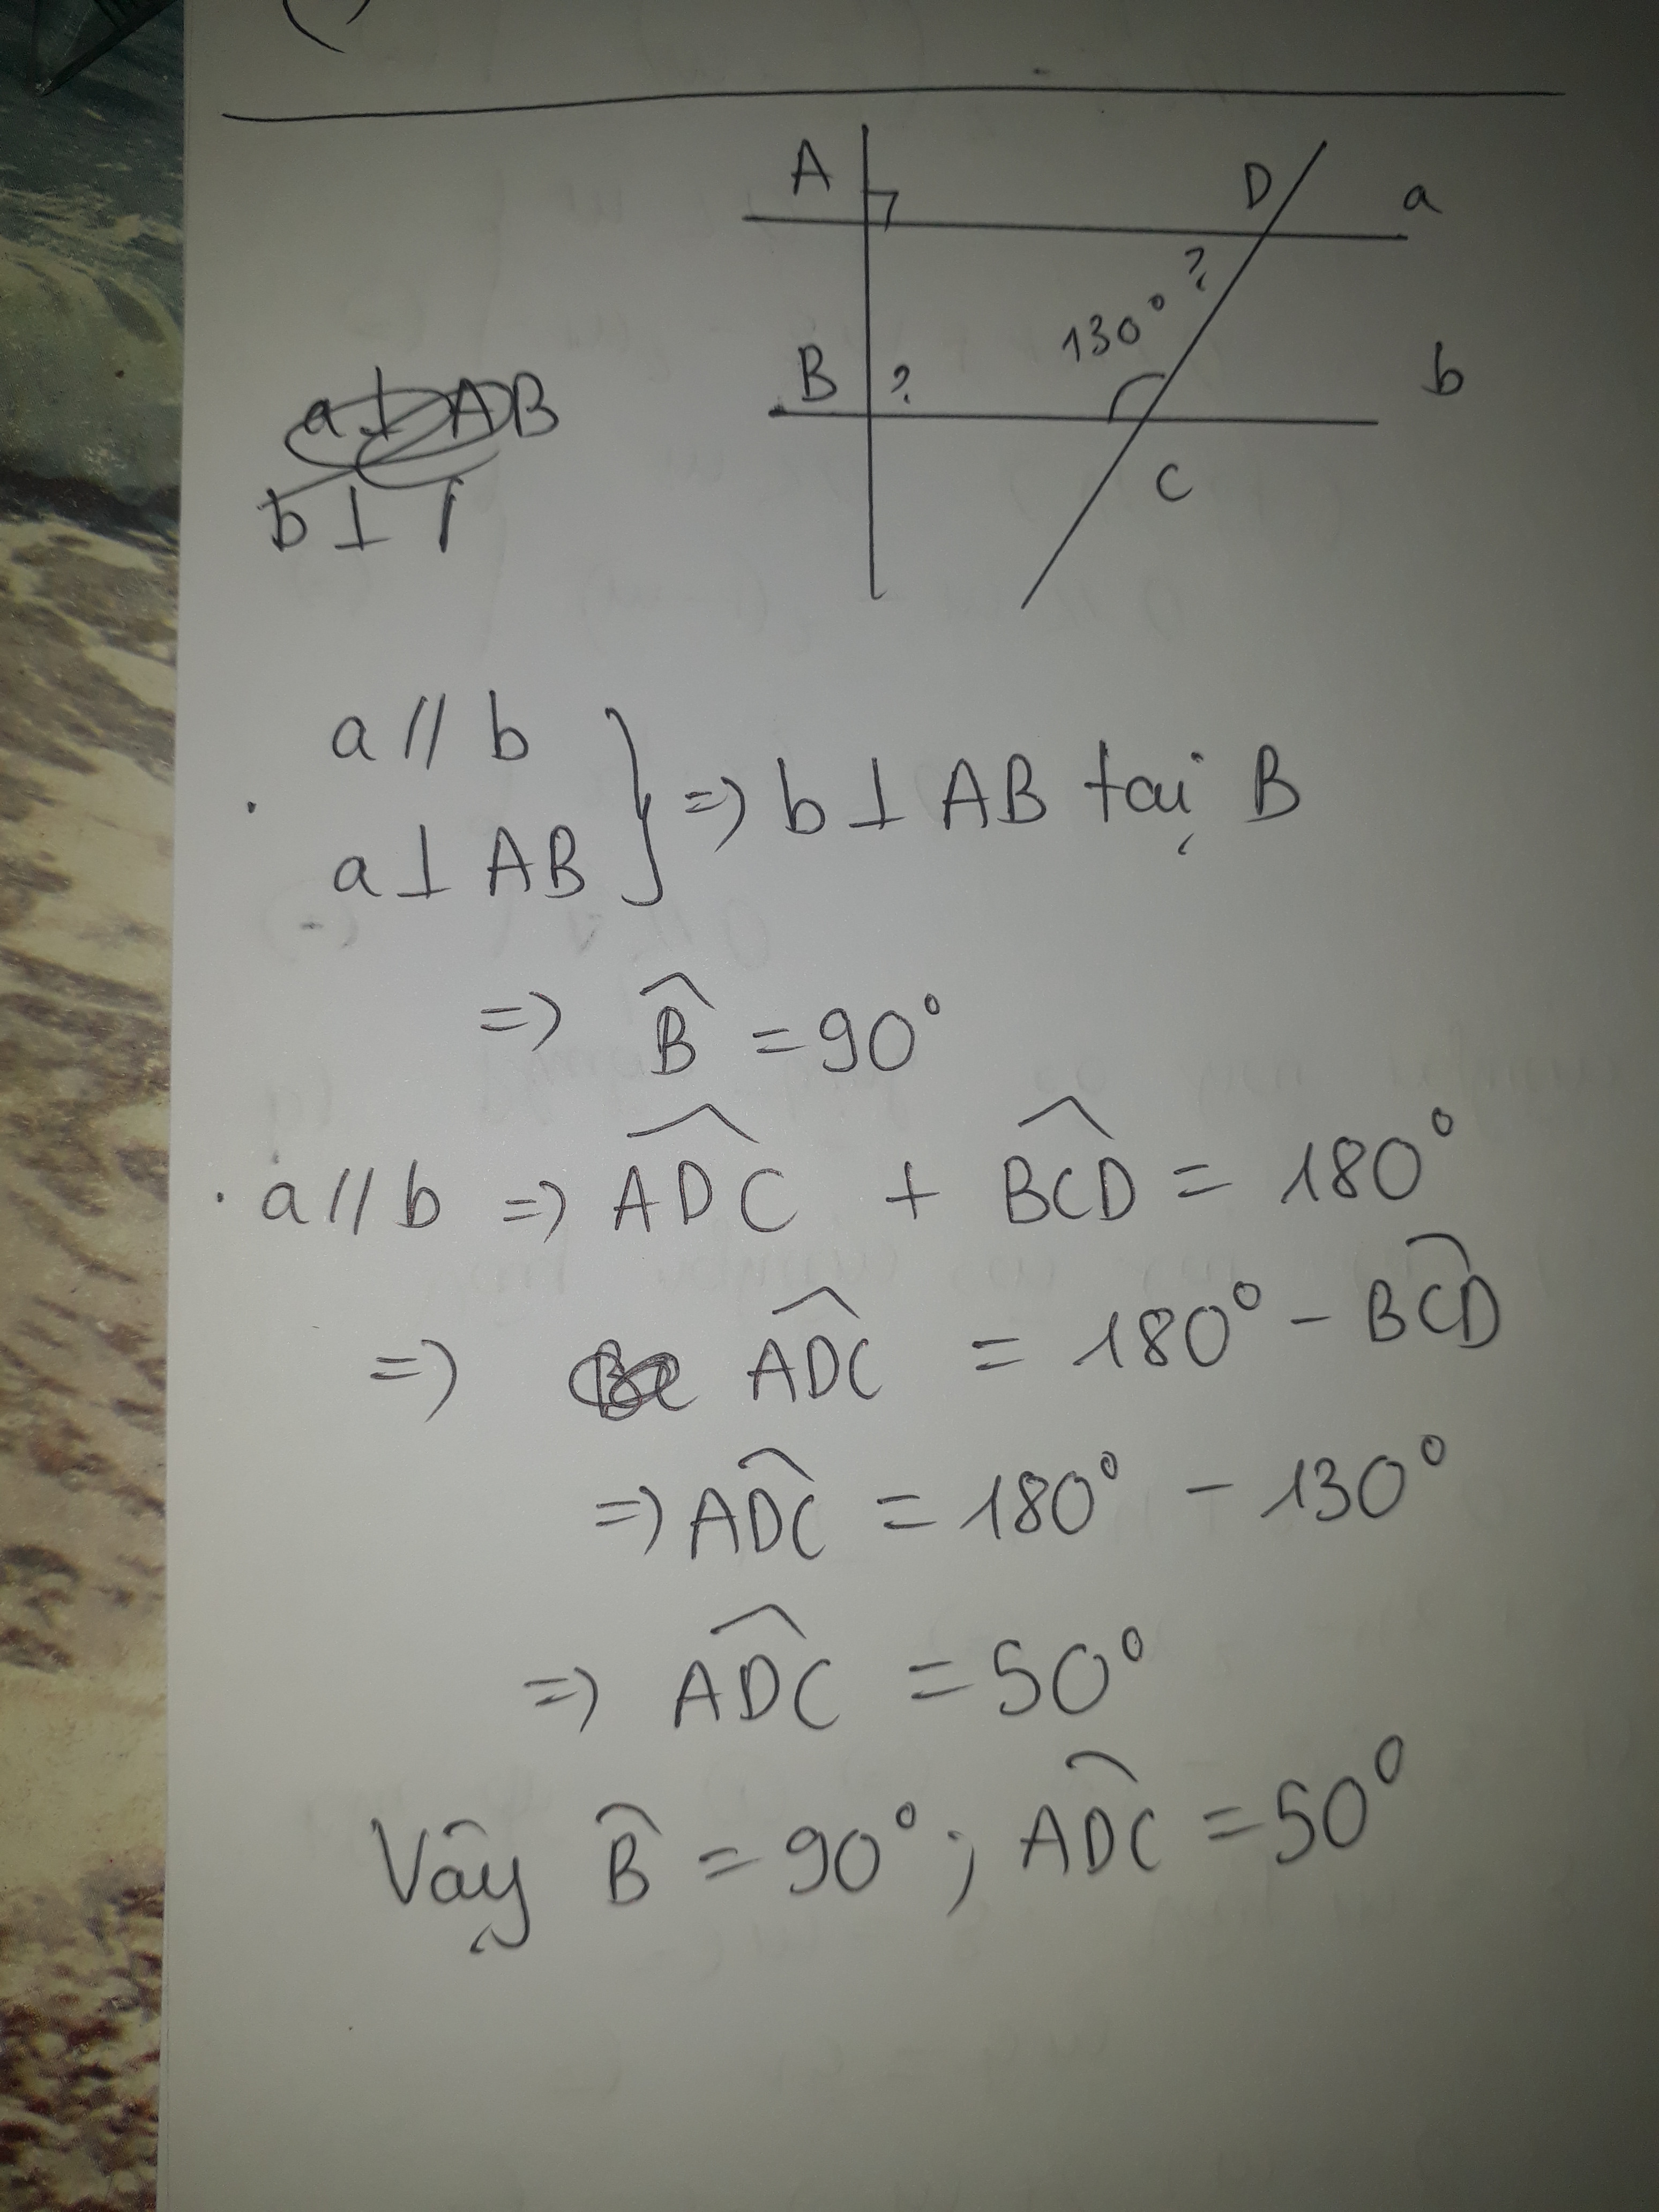 A
D
a
?
130°
B
?
b
C
a ⊥ AB
b ⊥
a // b
a ⊥ AB
} => b ⊥ AB tại B
=> B̂ = 90°
. a // b => ADC^ + BCD^ = 180°
=> ADC^ = 180° - BCD^
=> ADC^ = 180° - 130°
=> ADC^ = 50°
Vậy B̂ = 90° ; ADC^ = 50°